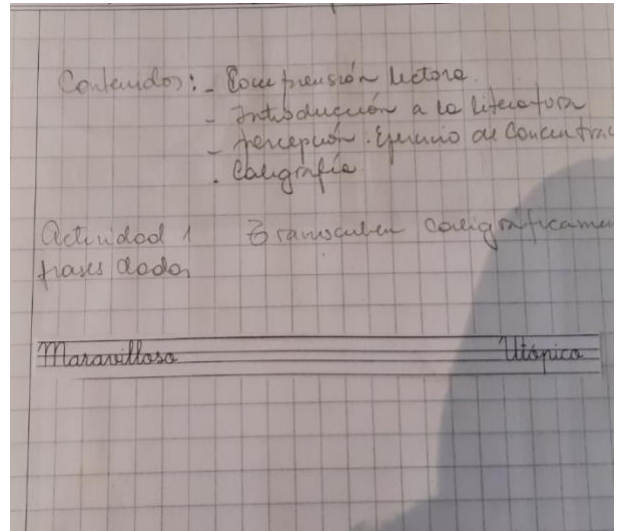 Contenidos: - Comprensión lectora.
- Introducción a la literatura
- Percepción. Ejercicio de Concentrac
. Caligrafía.
Actividad 1 Transcriben caligráficamen
frases dadas
Maravilloso Utópico